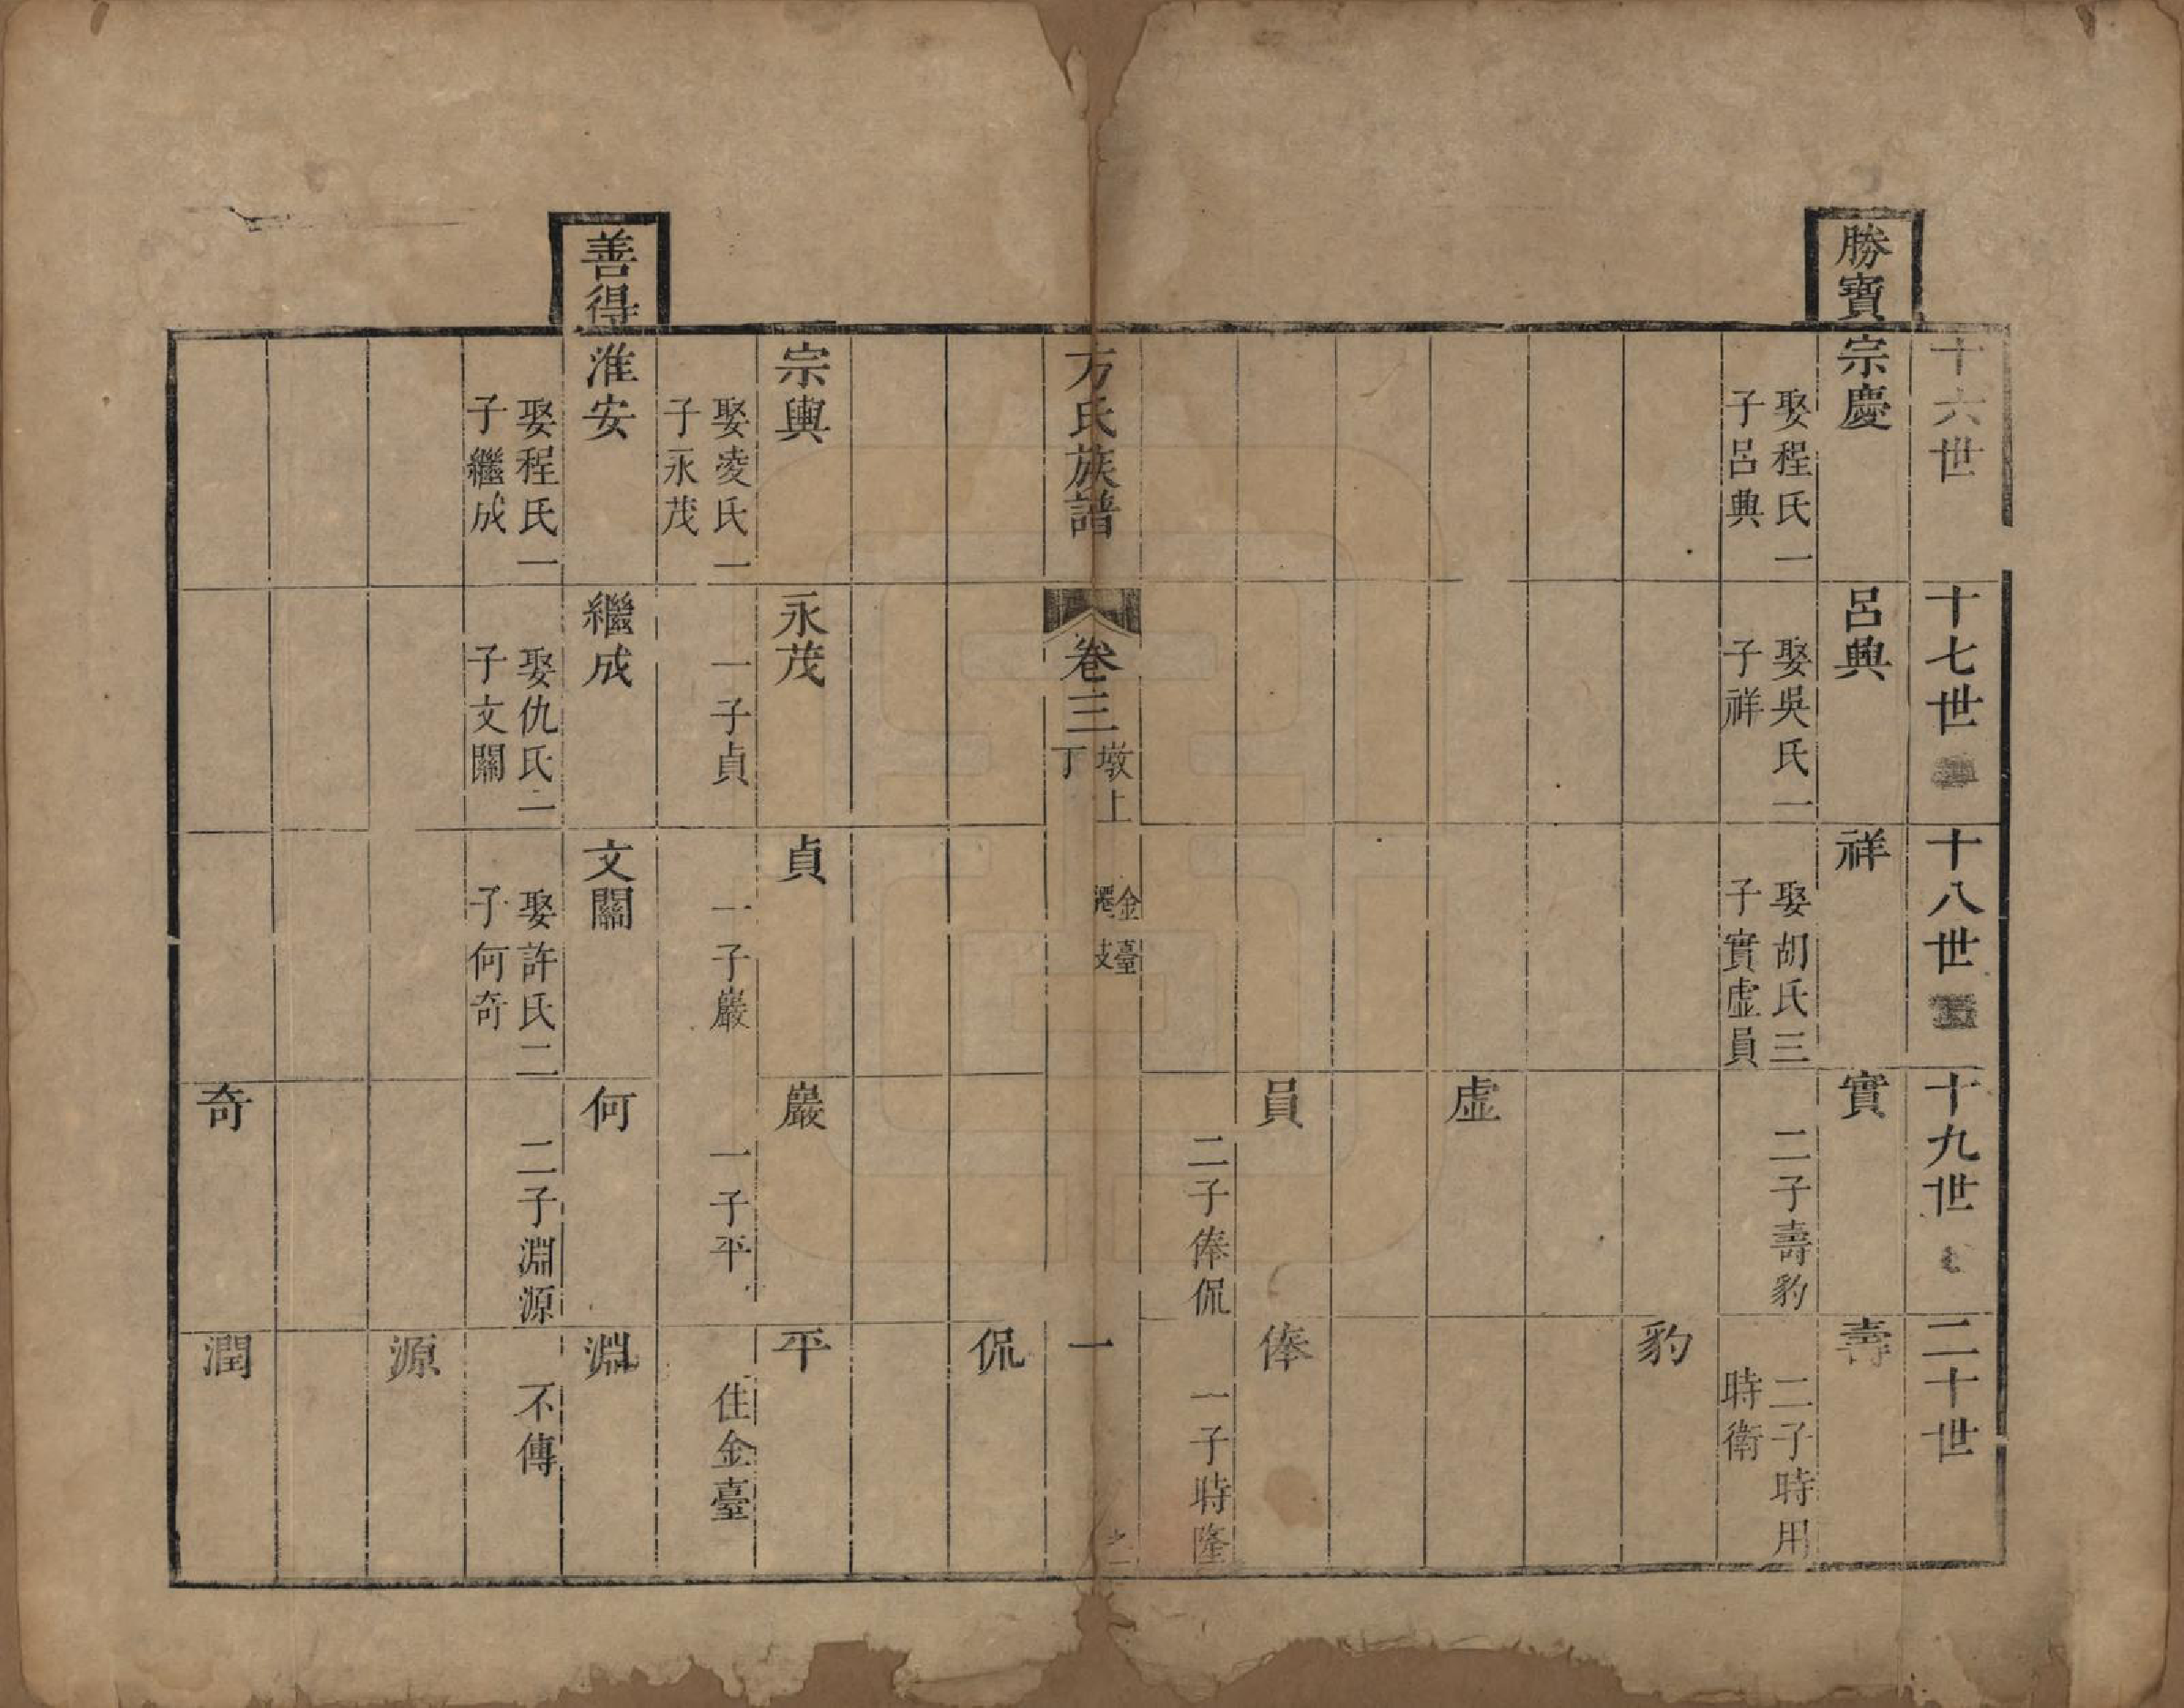 勝寶
十六世
十七世
十八世
十九世
二十世
宗慶
娶程氏一
子呂興
呂興
娶吳氏一
子祥
祥
娶胡氏三
子實虛員
實
二子壽豹
壽
二子時用
時衛
豹
虛
員
二子俸侃
俸
一子時隆
方氏族譜
卷三
墩上
丁
金臺
遷支
一
之二
侃
宗興
娶凌氏一
子永茂
永茂
一子貞
貞
一子巖
巖
一子平
平
住金臺
善得
淮安
娶程氏一
子繼成
繼成
娶仇氏一
子文關
文關
娶許氏二
子何奇
何
二子淵源
淵
不傳
源
奇
潤